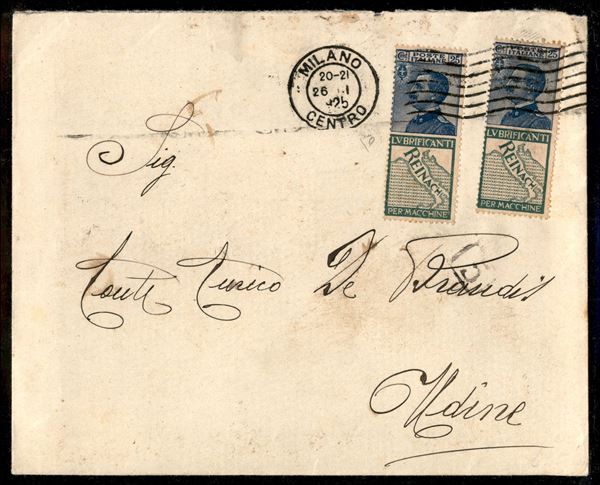 MILANO
20-21
26
925
CENTRO
C POSTE 25
ITALIANE
LVBRIFICANTI
REINACH
PER MACCHINE
C POSTE 25
ITALIANE
LVBRIFICANTI
REINACH
PER MACCHINE
Sig
Conte Enrico De Brandis
Udine